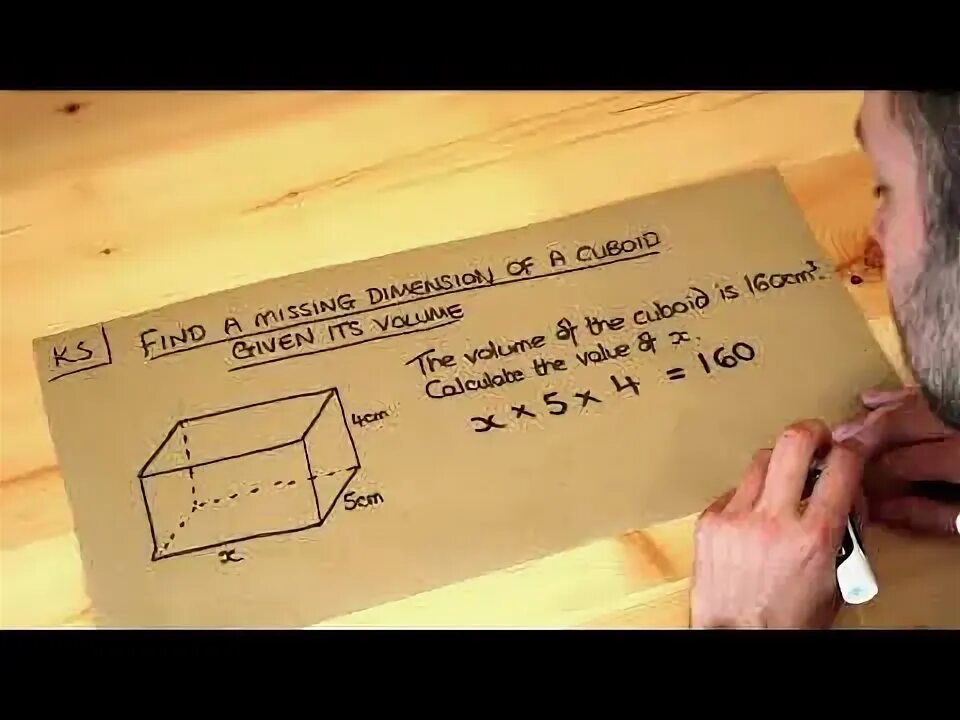 KS
FIND A MISSING DIMENSION OF A CUBOID
GIVEN ITS VOLUME
The volume of the cuboid is 160cm³.
Calculate the value of x.
x × 5 × 4 = 160
4cm
5cm
x